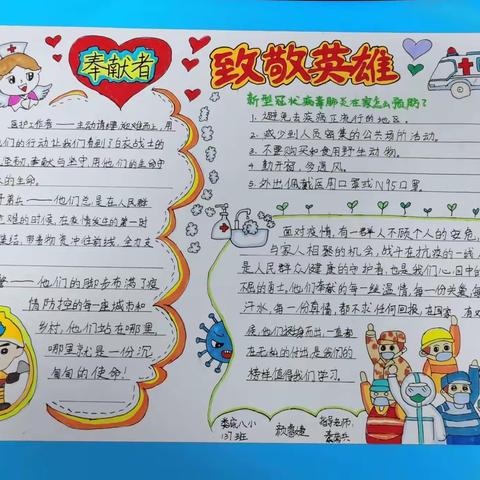 奉献者
致敬英雄
医护工作者——主动请缨,迎难而上,用
们的行动让我们看到了白衣战士的
坚韧,奉献与坚守,用他们的生命守
人的生命。
子弟兵——他们总是在人民群
危难的时候,在疫情发生的第一时
集结,带着物资冲往前线,全力支
——他们的脚步布满了疫
情防控的每一座城市和
乡村,他们站在哪里,
哪里就是一份沉
甸甸的使命!
新型冠状病毒肺炎在家怎么预防?
1.避免去疾病正流行的地区。
2.减少到人员密集的公共场所活动。
3.不要购买和食用野生动物。
4.勤开窗,多通风。
5.外出佩戴医用口罩或N95口罩。
面对疫情,有一群人不顾个人的安危,
与家人相聚的机会,战斗在抗疫的一线
是人民群众健康的守护者,也是我们心目中的
不屈的勇士,他们奉献的每一丝温情,每一份关爱,每
汗水,每一份真情,都不求任何回报,在国家有难
候,他们挺身而出,一直都
在无私的付出是我们的
榜样值得我们学习。
娄底八小
137班
指导老师: